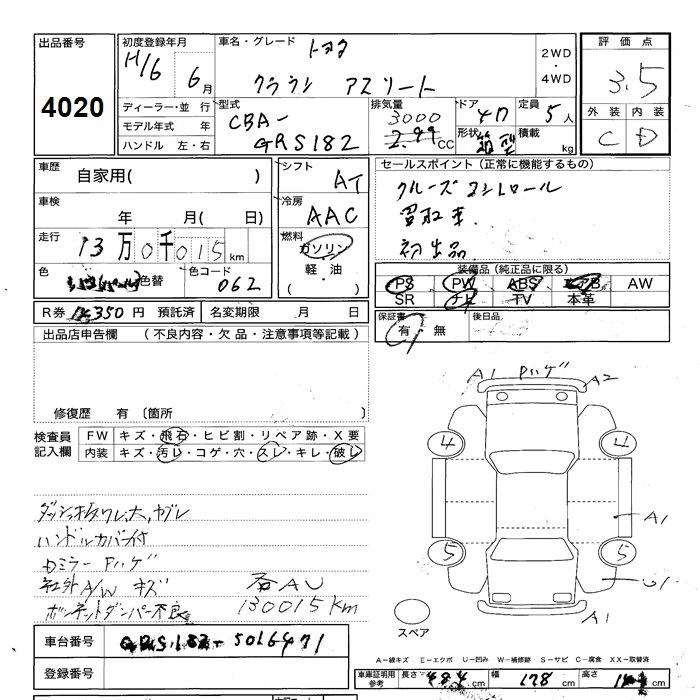 出品番号 初度登録年月 車名・グレード トヨタ 2WD 評価点
4020 H16 年 6月 クラウン アスリート ・4WD 3.5
ディーラー・並 行 型式 排気量 ドア 定員 外装 内装
モデル年式 年 CBA- 3000 4D 5人 C D
ハンドル 左・右 GRS182 2.99cc 形状 積載 kg
車歴 自家用( ) シフト AT セールスポイント(正常に機能するもの)
車検 年 月( 日) 冷房 AAC クルーズコントロール
走行 13万0千015km 燃料 ガソリン 買取車.
色 色替 色コード 062 軽・油 初出品
( ) 装備品(純正品に限る)
PS PW ABS エアB AW
SR ナビ TV 本革
R券 350円 預託済 名変期限 月 日 保証書 有・無 後日品
出品店申告欄 (不良内容・欠品・注意事項等記載)
修復歴 有 (箇所 )
検査員 FW キズ・飛石・ヒビ割・リペア跡・X要
記入欄 内装 キズ・汚レ・コゲ・穴・スレ・キレ・破レ
A1 Pハゲ A2
4 4
A1
5 5
U1
A1
スペア
ダッシュ板ワレ大,ヤブレ
ハンドルカバー付
Dミラー Pハゲ
社外A/W キズ 各AU
ボンネットダンパー不良 130015Km
車台番号 GRS182-5016471
登録番号
A-線キズ E-エクボ U-凹み W-補修跡 S-サビ C-腐食 XX-取替済
車庫証明用参考 長さ 484cm 幅 178cm 高さ cm